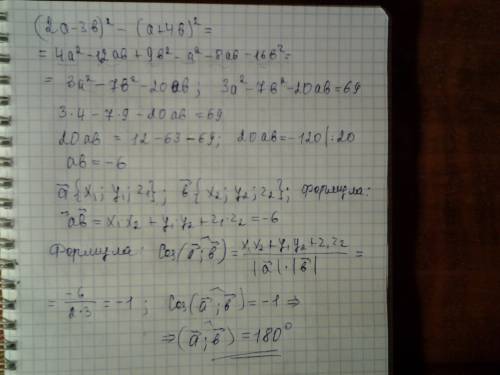 (2a-3b)² - (a+4b)² =
= 4a²-12ab+9b²-a²-8ab-16b²=
= 3a²-7b²-20ab; 3a²-7b²-20ab=69
3·4-7·9-20ab=69
20ab = 12-63-69; 20ab=-120|:20
ab=-6
a⃗{x₁; y₁; z₁}; b⃗{x₂; y₂; z₂}; формула:
a⃗b⃗ = x₁x₂+y₁y₂+z₁z₂=-6
Формула: Cos(a⃗;b⃗)= x₁x₂+y₁y₂+z₁z₂ / |a⃗|·|b⃗| =
= -6 / 2·3 = -1; Cos(a⃗;b⃗)=-1 ⇒
⇒(a⃗;b⃗)=180°